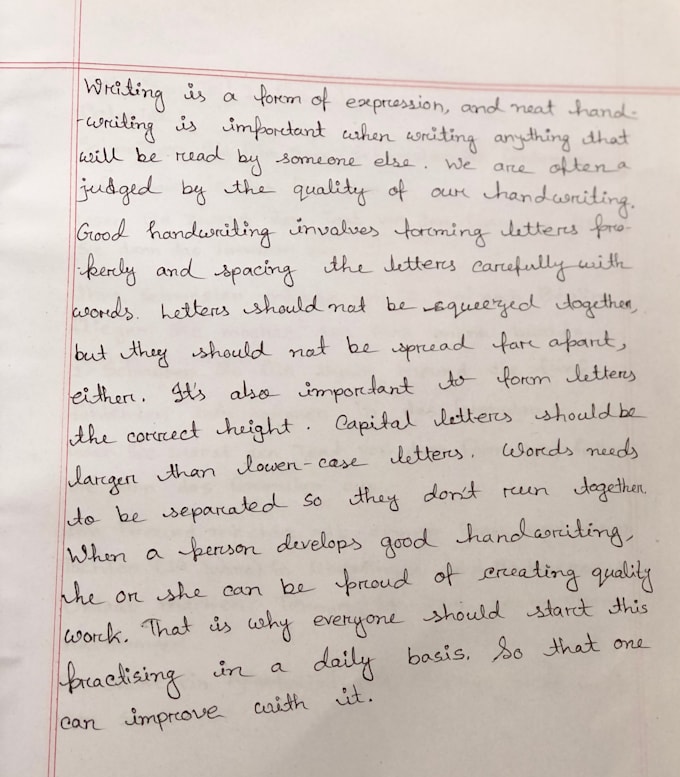 Writing is a form of expression, and neat hand-
-writing is important when writing anything that
will be read by someone else. We are often a
judged by the quality of our handwriting.
Good handwriting involves forming letters pro-
perly and spacing the letters carefully with
words. Letters should not be squeezed together,
but they should not be spread far apart,
either. It's also important to form letters
the correct height. Capital letters should be
larger than lower-case letters. Words needs
to be separated so they don't run together.
When a person develops good handwriting,
he or she can be proud of creating quality
work. That is why everyone should start this
practising in a daily basis. So that one
can improve with it.